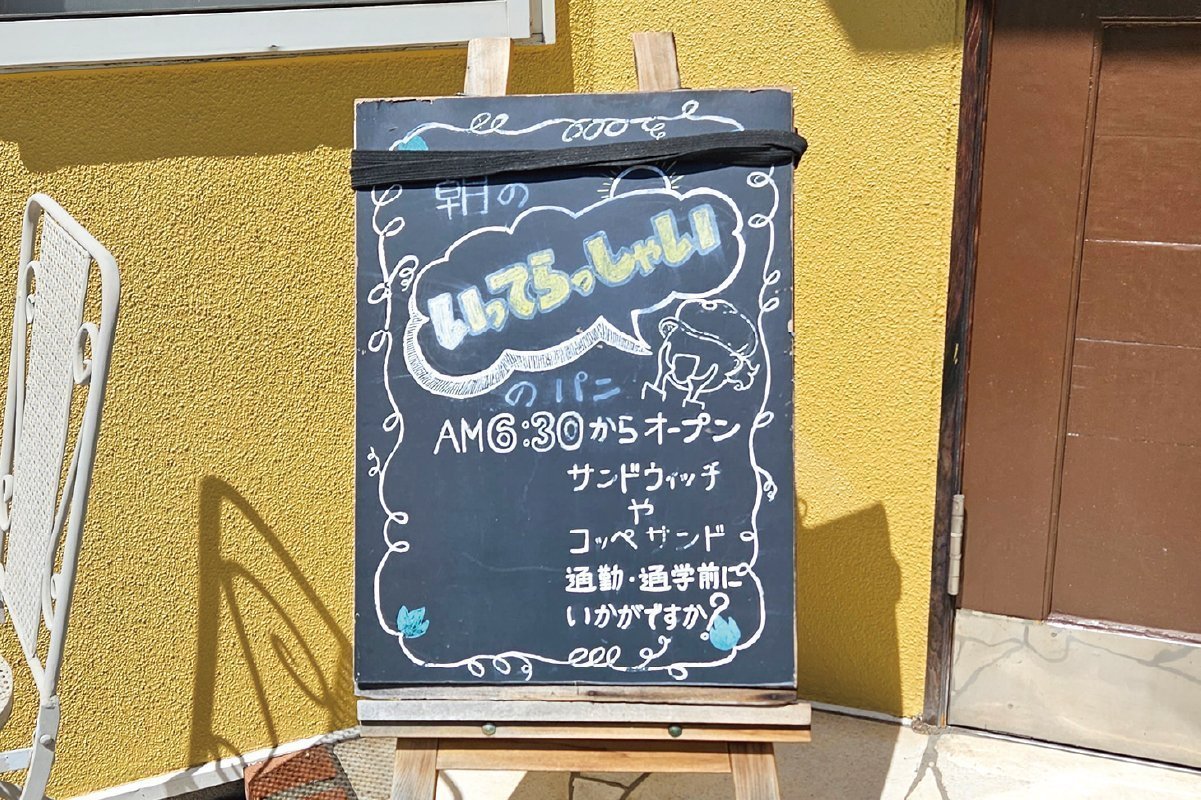 朝の
いってらっしゃい
のパン
AM6:30からオープン
サンドウィッチ
や
コッペサンド
通勤・通学前に
いかがですか?